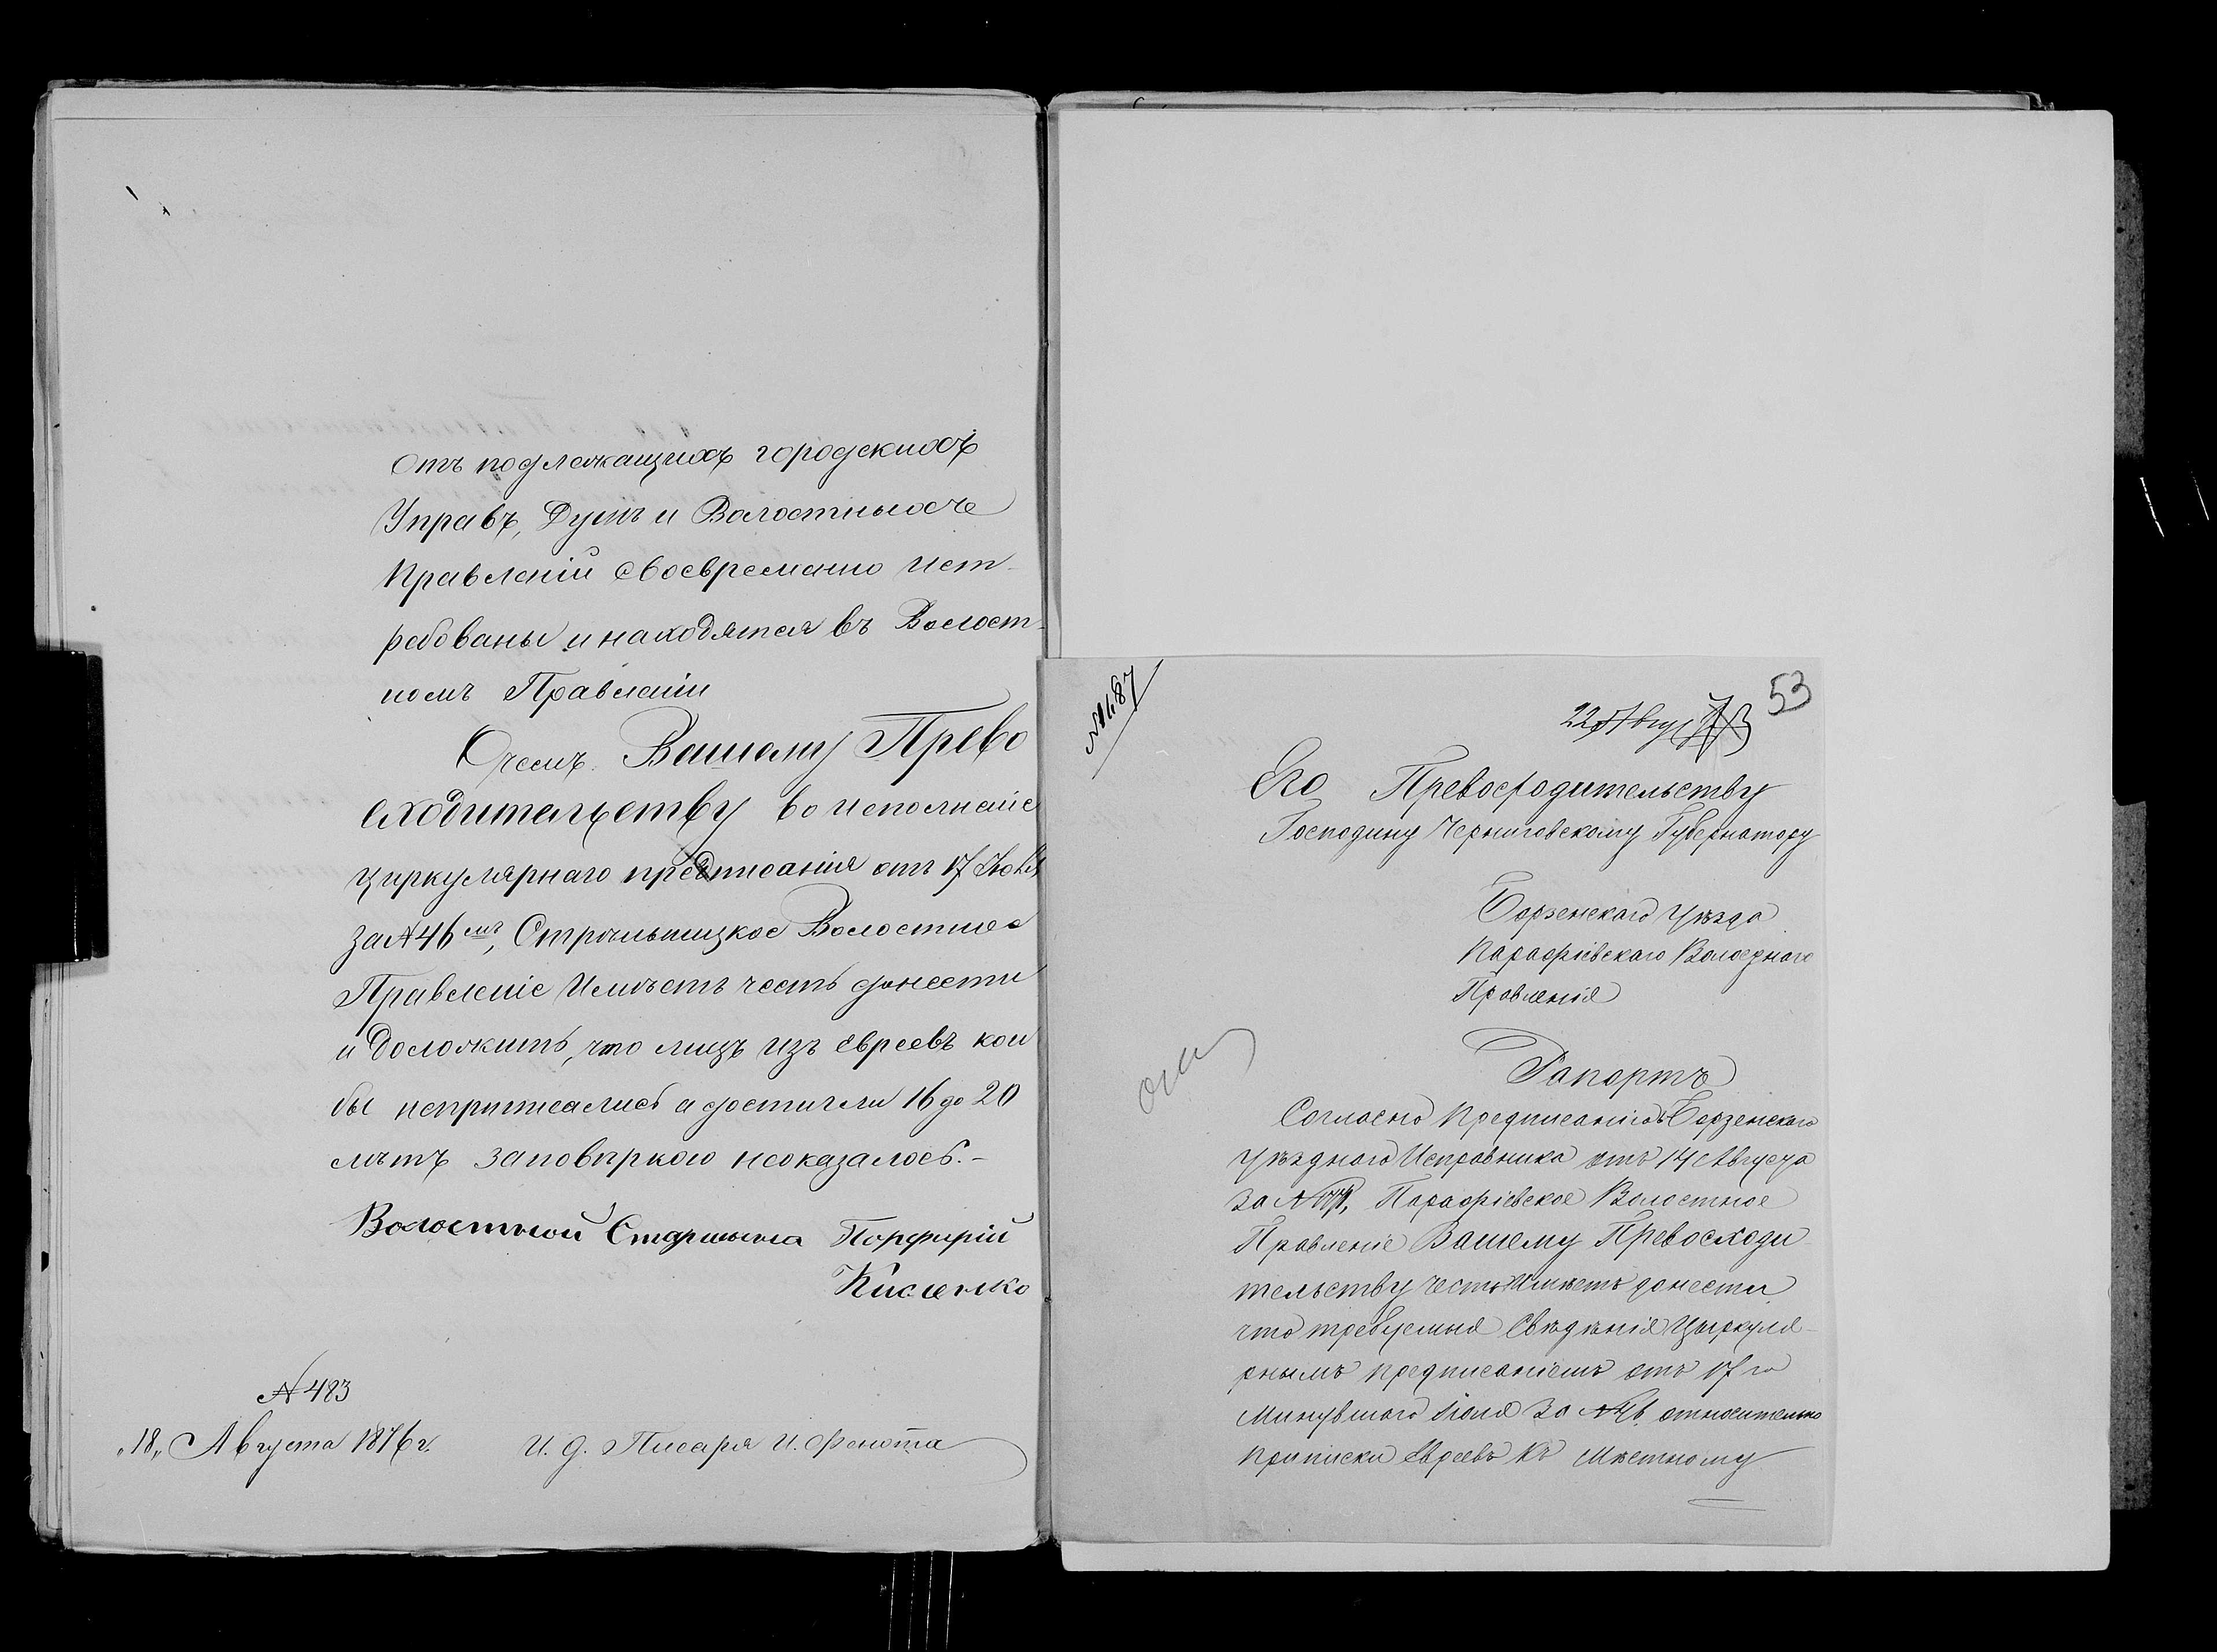 отъ подлежащихъ городскихъ
Управъ, Думъ и Волостныхъ
Правленій своевремянно ист-
ребованы и находятся въ Волост-
номъ Правленіи
Очемъ Вашему Прево
сходительству во исполненіе
циркулярнаго предписанія отъ 17 Іюля
за № 46мъ, Волостное
Правленіе Имѣетъ честь донести
и доложить, что лицъ изъ евреевъ кои
бы неприписались а достигли 16 до 20
лѣтъ заповѣркою неоказалось.-
Волостной Старшина Порфирій
Кисленко
№ 483
„18„ Августа 1876 г.
И. д. Писаря И.
53
22 Авгу
Его Превосходительству
Господину Черниговскому Губернатору
Борзенскаго Уѣзда
Парафіевскаго Волостнаго
Правленія
Рапортъ
Согласно предписанію Борзенскаго
Уѣзднаго Исправника отъ 14 Августа
за №, Парафіевское Волостное
Правленіе Вашему Превосходи
тельству честь Имѣетъ донести
что требуемыя Свѣдѣнія Циркуля-
рнымъ предписаніемъ отъ 17го
Минувшаго Іюля за № 46 относительно
приписки Евреевъ къ Мѣстному